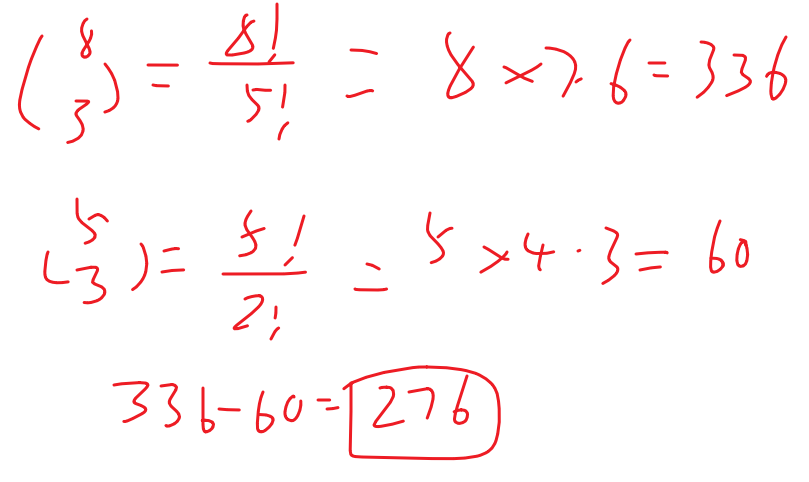 (8 3) = 8!/5! = 8 × 7 · 6 = 336
(5 3) = 5!/2! = 5 × 4 · 3 = 60
336 - 60 = 276